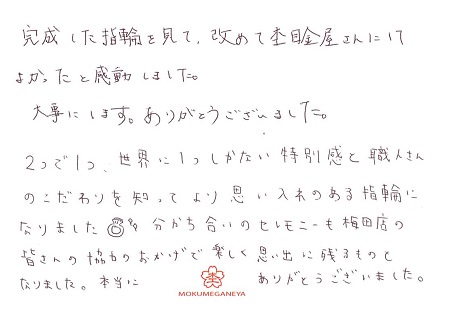 完成した指輪を見て、改めて杢目金屋さんにして
よかったと感動しました。
大事にします。ありがとうございました。
2つで1つ、世界に1つしかない特別感と職人さん
のこだわりを知ってより思い入れのある指輪に
なりました 分かち合いのセレモニーも梅田店の
皆さんの協力のおかげで楽しく思い出に残るものと
なりました。本当に ありがとうございました。
MOKUMEGANEYA